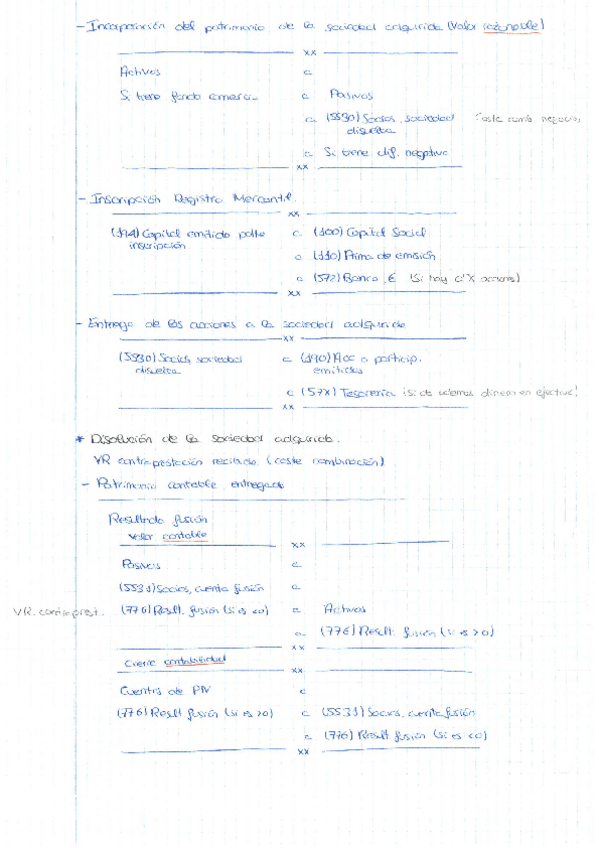 - Incorporación del patrimonio de la sociedad adquirida (Valor razonable)
xx
Activos a
Si tiene fondo comercio a Pasivos
a (5530) Socios, sociedad disuelta Coste comb. negocios
a Si tiene dif. negativa
xx
- Inscripción Registro Mercantil.
xx
(194) Capital emitido pdte inscripción a (100) Capital Social
a (110) Prima de emisión
a (572) Banco, € (Si hay acciones)
xx
- Entrega de las acciones a la sociedad adquirida
xx
(5530) Socios, sociedad disuelta a (190) Acc o particip. emitidas
a (57X) Tesorería ¡si de dinero en efectivo!
xx
* Disolución de la sociedad adquirida.
VR contraprestación recibida (coste combinación)
- Patrimonio contable entregado
Resultado fusión
Valor contable
xx
Pasivos a
(5531) Socios, cuenta fusión a
VR. contraprest. (776) Result. fusión (si es <0) a Activos
a (776) Result. fusión (si es >0)
xx
Cierre contabilidad
xx
Cuentas de PN a
(776) Result fusión (si es >0) a (5531) Socios, cuenta fusión
a (776) Result fusión (si es <0)
xx